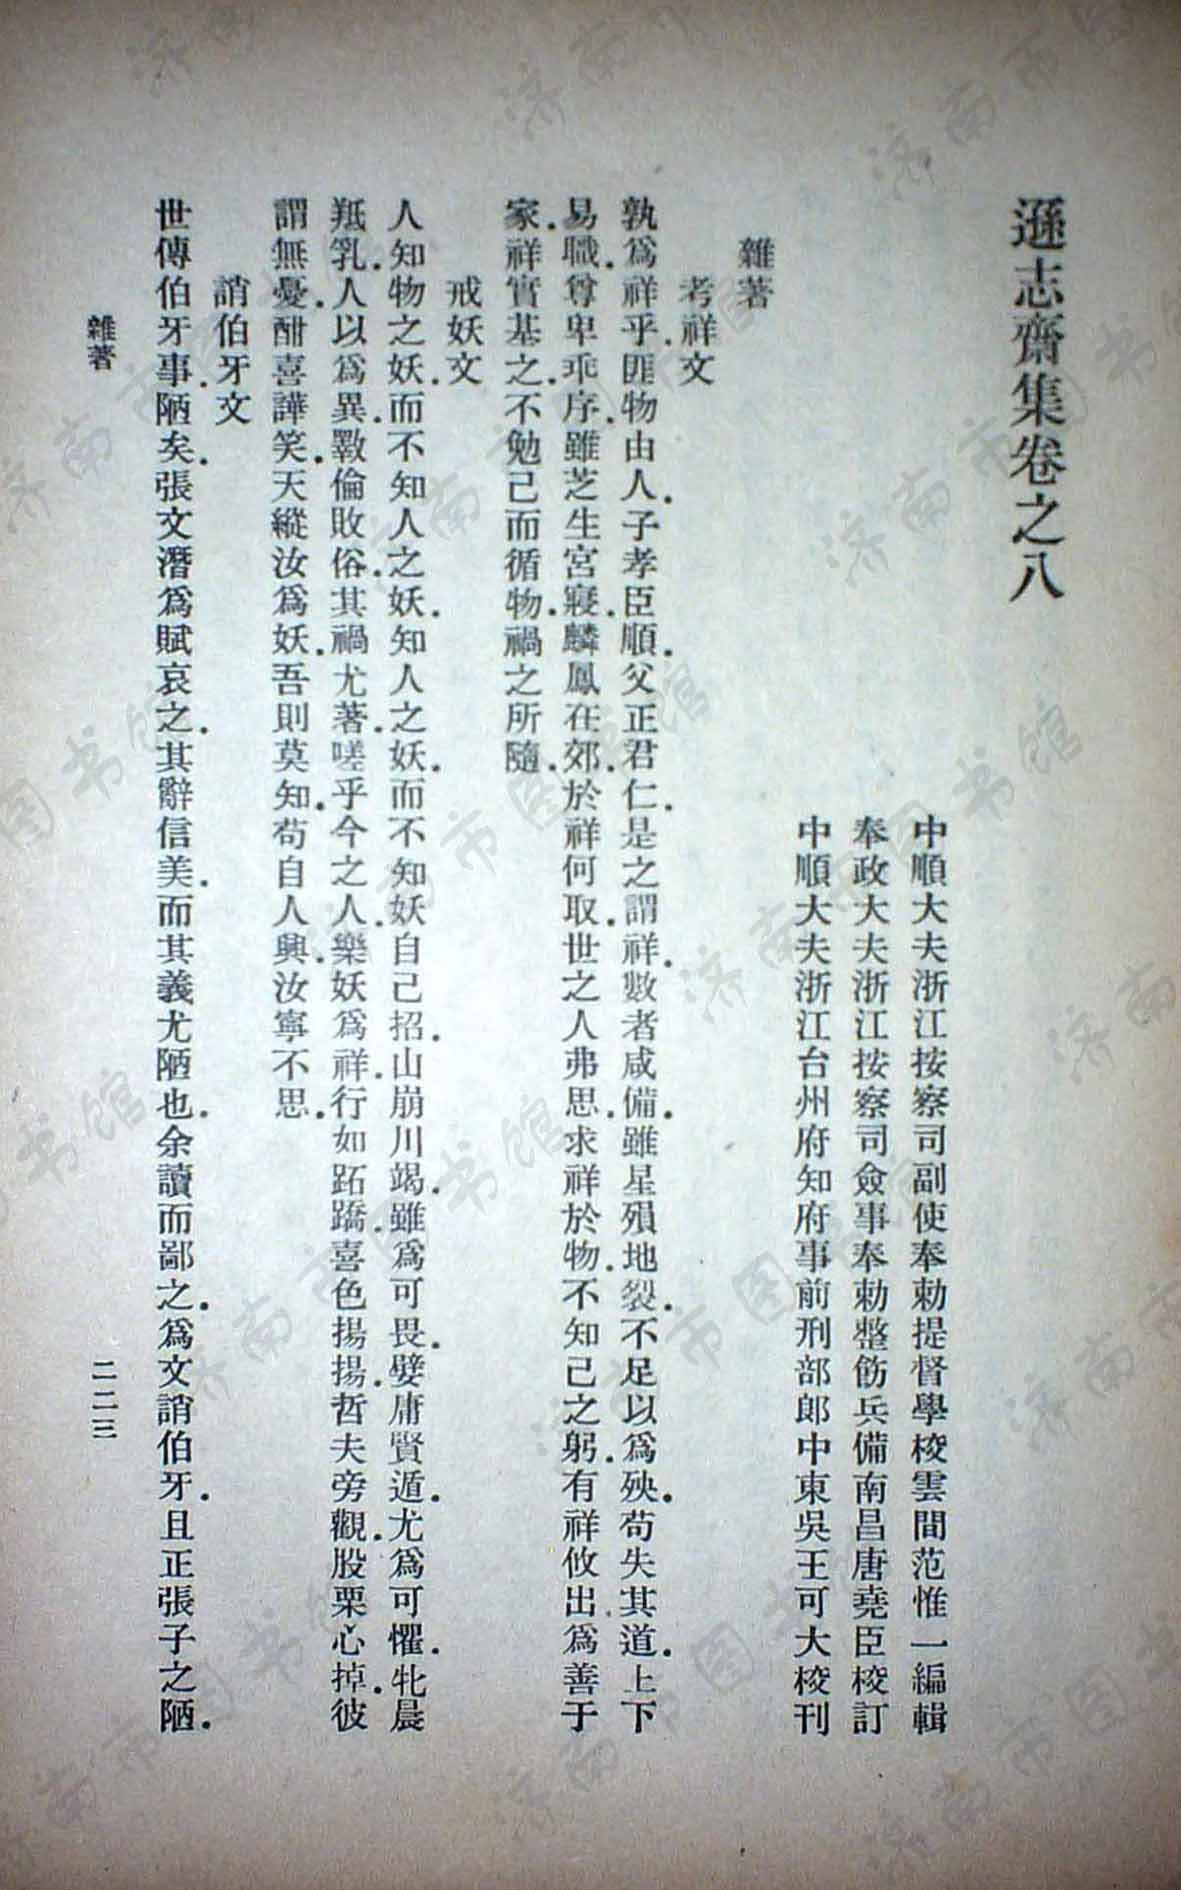 遜志齋集卷之八
中順大夫浙江按察司副使奉勅提督學校雲間范惟一編輯
奉政大夫浙江按察司僉事奉勅整飭兵備南昌唐堯臣校訂
中順大夫浙江台州府知府事前刑部郎中東吳王可大校刊
雜著
考祥文
孰爲祥乎.匪物由人.子孝臣順.父正君仁.是之謂祥.數者咸備.雖星殞地裂.不足以爲殃.苟失其道.上下
易職.尊卑乖序.雖芝生宮寢.麟鳳在郊.於祥何取.世之人弗思.求祥於物.不知己之躬.有祥攸出.爲善于
家.祥實基之.不勉己而循物.禍之所隨.
戒妖文
人知物之妖.而不知人之妖.知人之妖.而不知妖自己招.山崩川竭.雖爲可畏.嬖庸賢遁.尤爲可懼.牝晨
羝乳.人以爲異.斁倫敗俗.其禍尤著.嗟乎今之人.樂妖爲祥.行如跖蹻.喜色揚揚.哲夫旁觀.股栗心掉.彼
謂無憂.酣喜譁笑.天縱汝爲妖.吾則莫知.苟自人興.汝寧不思.
誚伯牙文
世傳伯牙事.陋矣.張文潛爲賦哀之.其辭信美.而其義尤陋也.余讀而鄙之.爲文誚伯牙.且正張子之陋.
雜著
二二三
济南市图书馆